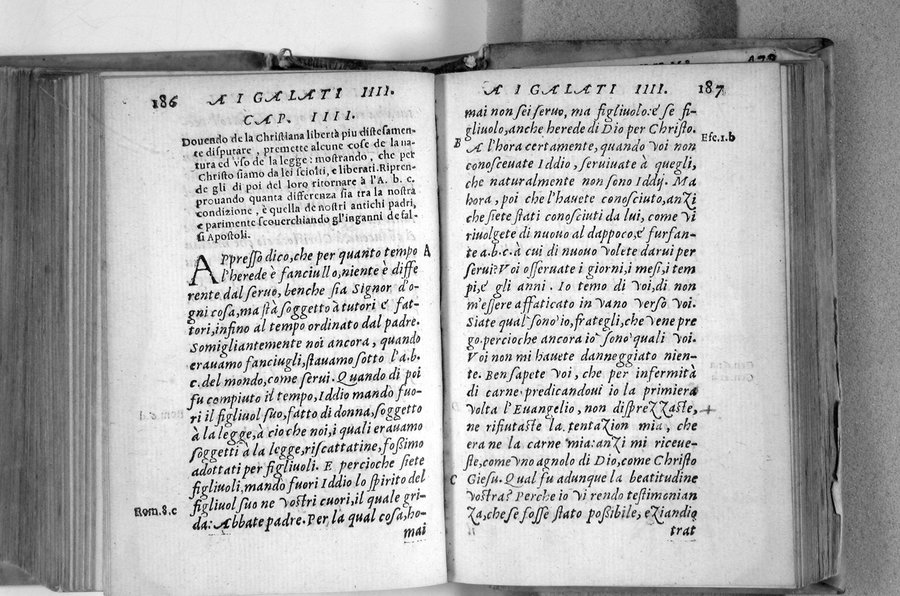 186 A I GALATI IIII.
CAP. IIII.
Dovendo de la Christiana libertà piu distesamen-
te disputare, premette alcune cose de la na-
tura ed vso de la legge: mostrando, che per
Christo siamo da lei sciolti, e liberati. Ripren-
de gli di poi del loro ritornare à l'A. b. c.
prouando quanta differenza sia tra la nostra
condizione, è quella de nostri antichi padri,
e parimente scouerchiando gl'inganni de fal-
si Apostoli.
APpresso dico, che per quanto tempo A
l'herede è fanciullo, niente è diffe
rente dal seruo, benche sia Signor d'o-
gni cosa, ma stà soggetto à tutori é fat-
tori, infino al tempo ordinato dal padre.
Somigliantemente noi ancora, quando
erauamo fanciugli, stauamo sotto l'a.b.
c. del mondo, come serui. Quando di poi
fu compiuto il tempo, Iddio mandò fuo-
ri il figliuol suo, fatto di donna, soggetto
à la legge, à cio che noi, i quali erauamo
soggetti à la legge, riscattatine, foßimo
adottati per figliuoli. E percioche siete
figliuoli, mandò fuori Iddio lo spirito del
Rom. 8. c figliuol suo ne vostri cuori, il quale gri-
da: Abbate padre. Per la qual cosa, ho-
mai
A I GALATI IIII. 187
mai non sei seruo, ma figliuolo: é se fi-
gliuolo, anche herede di Dio per Christo.
B A l'hora certamente, quando voi non Efe. 1. b
conosceuate Iddio, seruiuate à quegli,
che naturalmente non sono Iddij. Ma
hora, poi che l'hauete conosciuto, anZi
che siete stati conosciuti da lui, come vi
riuolgete di nuouo al dappoco, é furfan-
te a.b.c. à cui di nuouo volete darui per
serui? Voi osseruate i giorni, i mesi, i tem
pi, é gli anni. Io temo di voi, di non
m'essere affaticato in vano verso voi.
Siate qual sono io, frategli, che vene pre
go. percioche ancora io sono quali voi.
Voi non mi hauete danneggiato nien-
te. Ben sapete voi, che per infermità
di carne predicandoui io la primiera
volta l'Euangelio, non disprezzaste,
ne rifiutaste la tentaZion mia, che
era ne la carne mia: anZi mi riceue-
ste, come vno agnolo di Dio, come Christo
C Giesu. Qual fu adunque la beatitudine
vostra? Perche io vi rendo testimonian
Za, che se fosse stato poßibile, eZiandio
trat